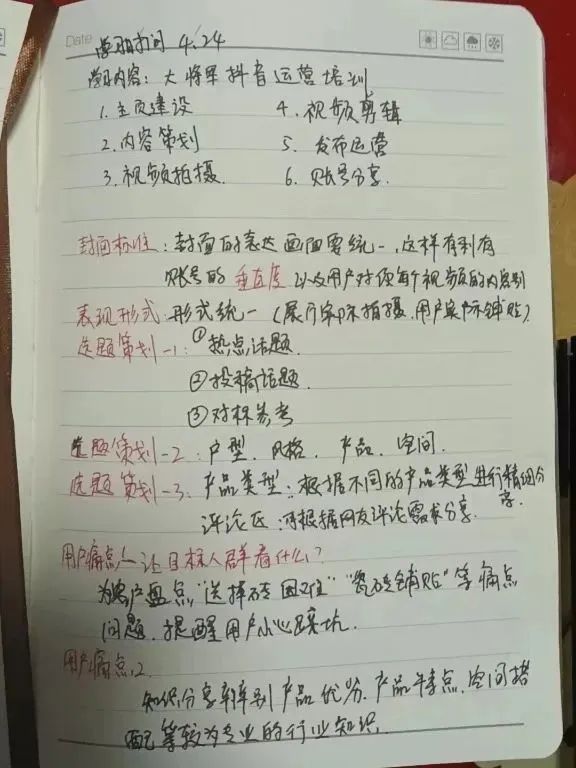 Date
学习时间 4.24
学习内容：大将军抖音运营培训
1.主页建设 4.视频剪辑
2.内容策划 5.发布运营
3.视频拍摄. 6.账号分享.
封面标准：封面的表达画面要统一,这样有利有
账号的垂直度 以及用户对须每个视频的内容别
表现形式:形式统一（展厅实际拍摄.用户实际铺贴）.
选题策划-1: ①热点话题.
②投稿话题.
③对标参考
选题策划-2：户型、风格、产品、空间.
选题策划-3:产品类型：根据不同的产品类型进行精细分
享.
评论区:可根据网友评论需求分享.
用户痛点1—让目标人群看什么?
为客户盘点"选择砖困难""瓷砖铺贴"等痛点
问题.提醒用户小心踩坑.
用户痛点.2.
知识分享辨别产品优劣.产品特点.空间搭
配等较为专业的行业知识.